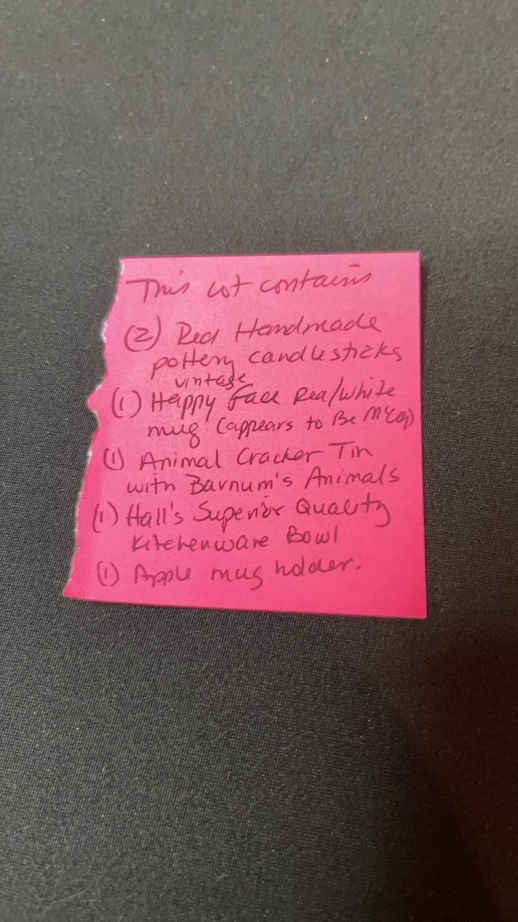 This lot contains
(2) Red Handmade
pottery candlesticks
vintage
(1) Happy Face Red/white
mug (appears to Be McCoy)
(1) Animal Cracker Tin
with Barnum's Animals
(1) Hall's Superior Quality
Kitchenware Bowl
(1) Apple mug holder.